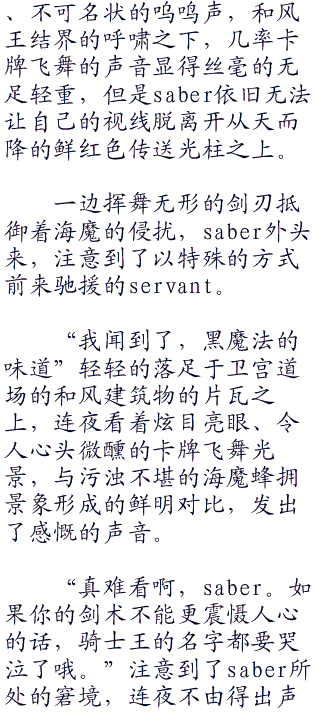 、不可名状的呜鸣声，和风
王结界的呼啸之下，几率卡
牌飞舞的声音显得丝毫的无
足轻重，但是saber依旧无法
让自己的视线脱离开从天而
降的鲜红色传送光柱之上。
一边挥舞无形的剑刃抵
御着海魔的侵扰，saber外头
来，注意到了以特殊的方式
前来驰援的servant。
“我闻到了，黑魔法的
味道”轻轻的落足于卫宫道
场的和风建筑物的片瓦之
上，连夜看着炫目亮眼、令
人心头微醺的卡牌飞舞光
景，与污浊不堪的海魔蜂拥
景象形成的鲜明对比，发出
了感慨的声音。
“真难看啊，saber。如
果你的剑术不能更震慑人心
的话，骑士王的名字都要哭
泣了哦。”注意到了saber所
处的窘境，连夜不由得出声